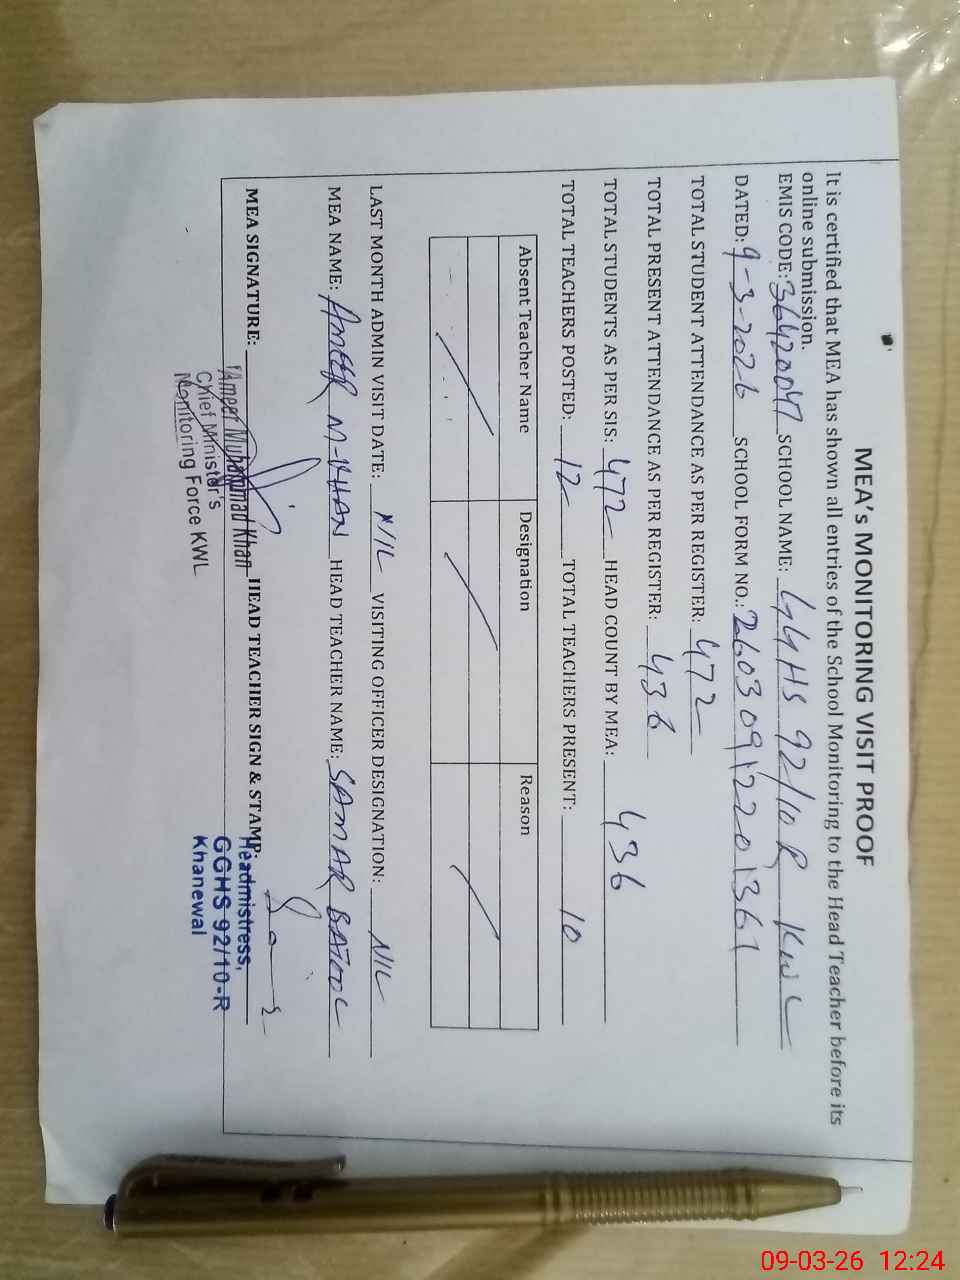 MEA's MONITORING VISIT PROOF
It is certified that MEA has shown all entries of the School Monitoring to the Head Teacher before its
online submission.
EMIS CODE: 36420047 SCHOOL NAME: GGHS 92/10R KWL
DATED: 9-3-2026 SCHOOL FORM NO.: 26030912201361
TOTAL STUDENT ATTENDANCE AS PER REGISTER: 472
TOTAL PRESENT ATTENDANCE AS PER REGISTER: 436
TOTAL STUDENTS AS PER SIS: 472 HEAD COUNT BY MEA: 436
TOTAL TEACHERS POSTED: 12 TOTAL TEACHERS PRESENT: 10
Absent Teacher Name Designation Reason
LAST MONTH ADMIN VISIT DATE: NIL VISITING OFFICER DESIGNATION: NIL
MEA NAME: AMEER M-KHAN HEAD TEACHER NAME: SAMAR BATOOL
MEA SIGNATURE: HEAD TEACHER SIGN & STAMP:
Ameer Muhammad Khan
Chief Minister's
Monitoring Force KWL
Headmistress,
GGHS 92/10-R
Khanewal
09-03-26 12:24